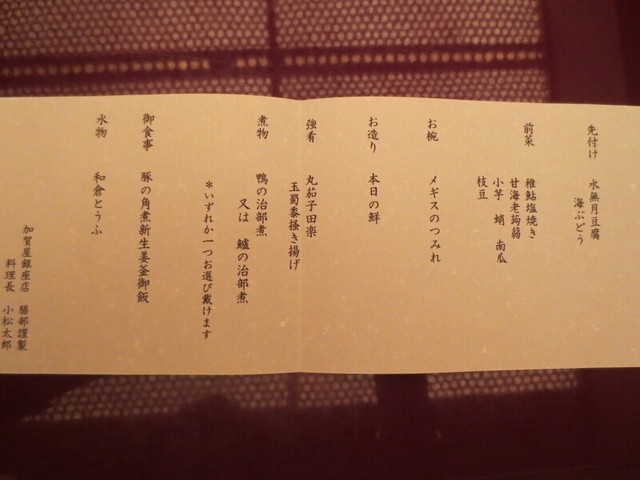 先付け 水無月豆腐
海ぶどう
前菜 稚鮎塩焼き
甘海老蒟蒻
小芋 蛸 南瓜
枝豆
お椀 メギスのつみれ
お造り 本日の鮮
強肴 丸茄子田楽
玉蜀黍掻き揚げ
煮物 鴨の治部煮
又は 鱸の治部煮
*いずれか一つお選び戴けます
御食事 豚の角煮新生姜釜御飯
水物 和倉とうふ
加賀屋銀座店 膳部謹製
料理長 小松太郎